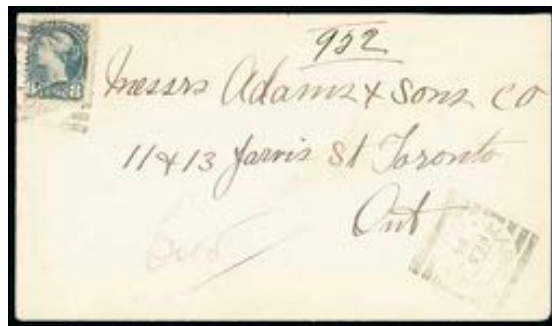 952
Messrs Adams & Sons Co
11 & 13 Jarvis St Toronto
Ont
8